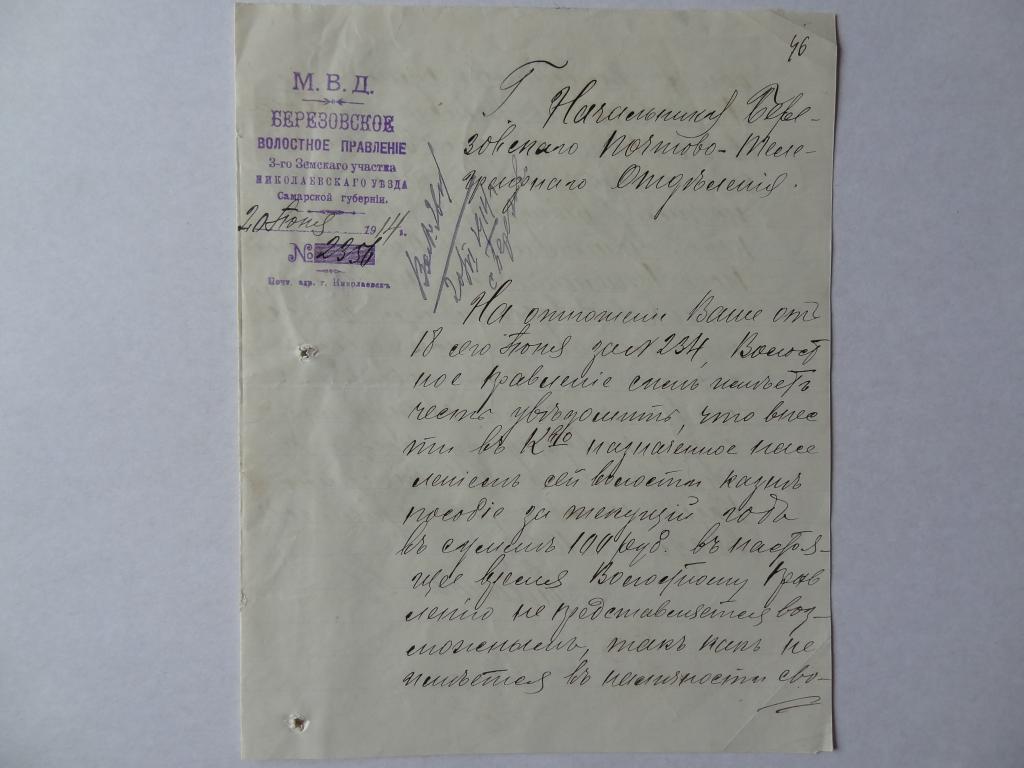 46
М. В. Д.
БЕРЕЗОВСКОЕ
ВОЛОСТНОЕ ПРАВЛЕНІЕ
3-го Земскаго участка
НИКОЛАЕВСКАГО УѢЗДА
Самарской губерніи.
20 Іюня 1914 г.
№ 2356
Почт. адр. г. Николаевскъ
Г Начальнику Бере-
зовскаго Почтово-Теле-
графнаго Отдѣленія.
На отношеніи Ваше отъ
18 сего Іюня за № 234, Волост
ное Правленіе симъ имѣетъ
честь увѣдомить, что внес
ти въ назначенное насе
леніемъ сей волости казнѣ
пособіе за текущій годъ
въ суммѣ 100 руб. въ настоя-
щее время Волостному Прав
ленію не представляется воз-
можнымъ, такъ какъ не
имѣется въ наличности сво-